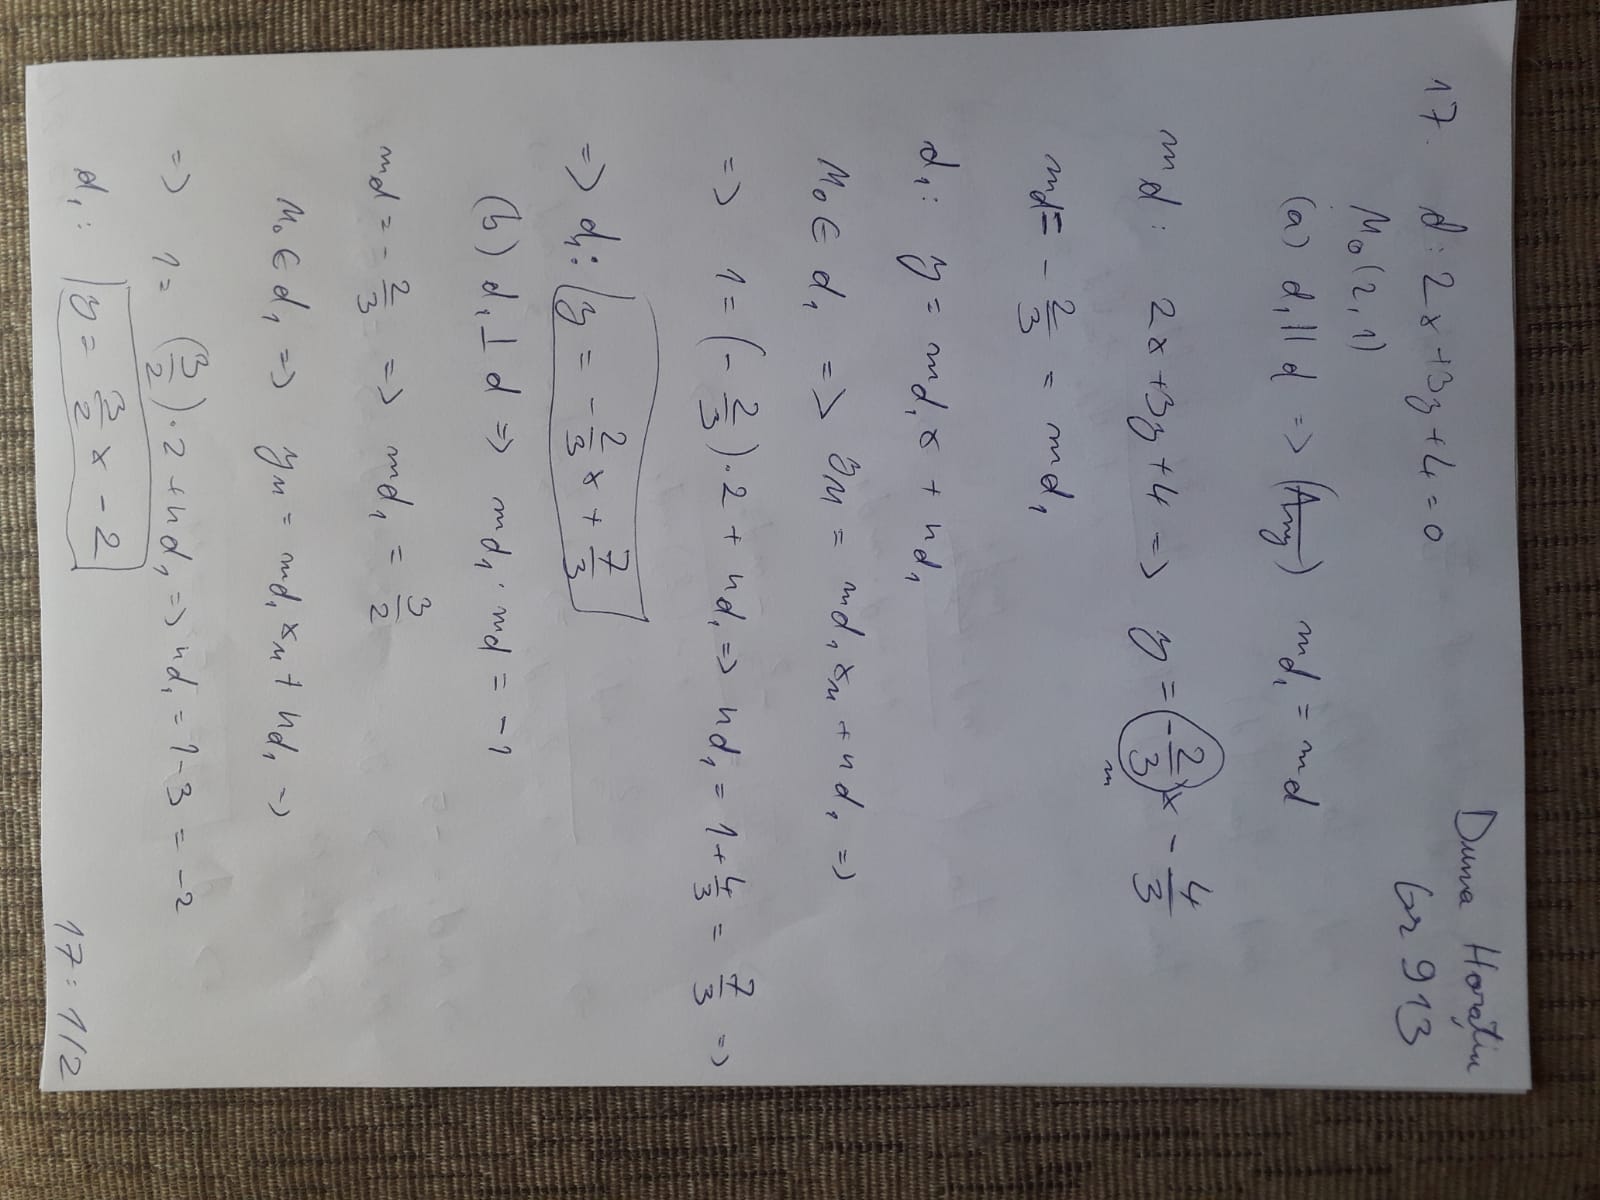 Duma Horațiu
Gr 913
17. d: 2x+3y+4=0
M₀(2, 1)
(a) d₁ || d => md₁ = md
md: 2x+3y+4 => y = -2/3 x - 4/3
m
md = - 2/3 = md₁
d₁: y = md₁x + nd₁
M₀ ∈ d₁ => yM = md₁ xM + nd₁ =>
=> 1 = (- 2/3) · 2 + nd₁ => nd₁ = 1 + 4/3 = 7/3 =>
=> d₁: y = - 2/3 x + 7/3
(b) d₁ ⊥ d => md₁ · md = -1
md = - 2/3 => md₁ = 3/2
M₀ ∈ d₁ => yM = md₁ xM + nd₁ =>
=> 1 = (3/2) · 2 + nd₁ => nd₁ = 1-3 = -2
d₁: y = 3/2 x - 2
17: 1/2